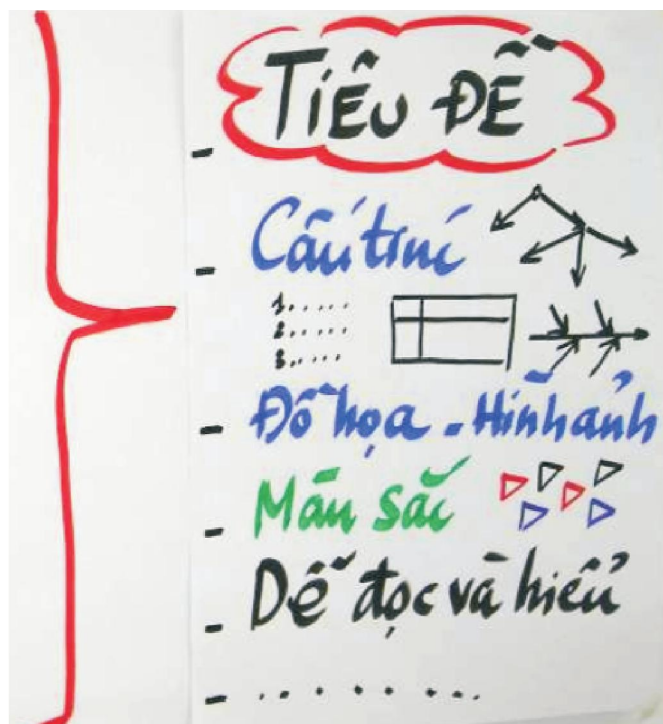 - TIÊU ĐỀ
- Cấu trúc
1.....
2.....
3.....
- Đồ họa - Hình ảnh
- Màu sắc
- Dễ đọc và hiểu
- .......